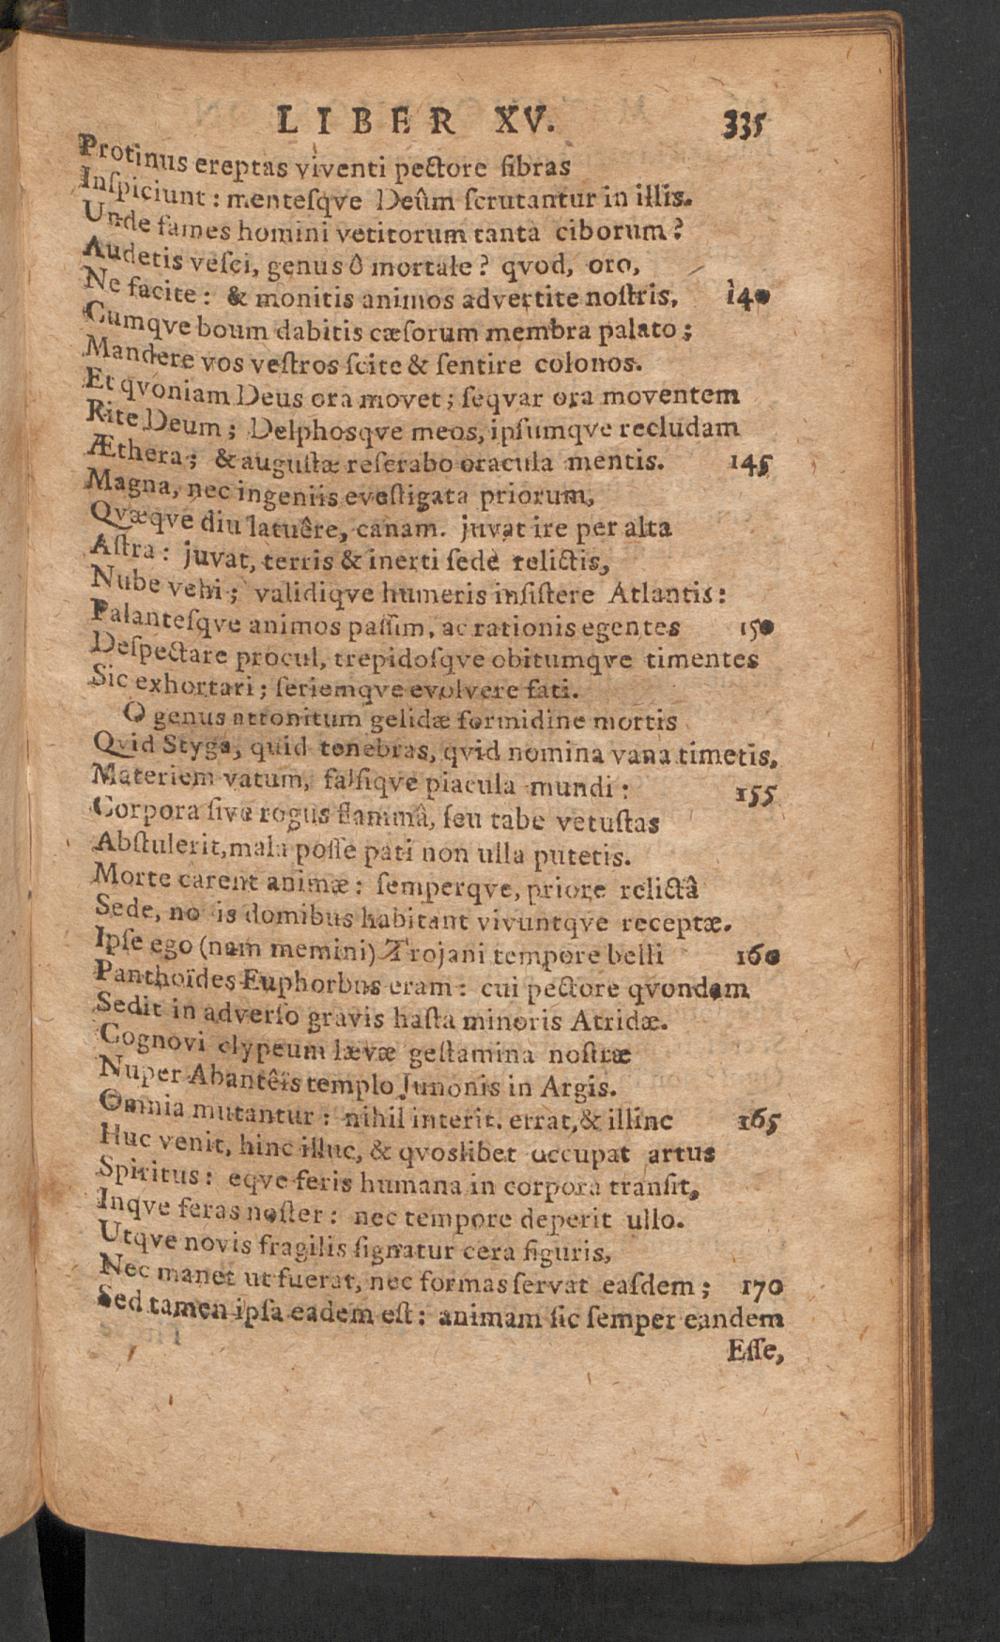 LIBER XV. 335
Protinus ereptas viventi pectore fibras
Inſpiciunt : menteſqve Deûm ſcrutantur in illis.
Unde fames homini vetitorum tanta ciborum ?
Audetis veſci, genus ô mortale ? qvod, oro,
Ne facite : & monitis animos advertite noſtris, 140
Cumqve boum dabitis cæſorum membra palato ;
Mandere vos veſtros ſcite & ſentire colonos.
Et qvoniam Deus ora movet ; ſeqvar ora moventem
Rite Deum ; Delphosqve meos, ipſumqve recludam
Æthera ; & auguſtæ reſerabo oracula mentis. 145
Magna, nec ingeniis eveſtigata priorum,
Qvæqve diu latuêre, canam. juvat ire per alta
Aſtra : juvat, terris & inerti ſede relictis,
Nube vehi ; validiqve humeris inſiſtere Atlantis :
Palanteſqve animos paſſim, ac rationis egentes 150
Deſpectare procul, trepidoſqve obitumqve timentes
Sic exhortari ; ſeriemqve evolvere fati.
O genus attonitum gelidæ formidine mortis
Qvid Styga, quid tenebras, qvid nomina vana timetis,
Materiem vatum, falſiqve piacula mundi : 155
Corpora ſive rogus flammâ, ſeu tabe vetuſtas
Abſtulerit, mala poſſe pati non ulla putetis.
Morte carent animæ : ſemperqve, priore relictâ
Sede, no is domibus habitant vivuntqve receptæ.
Ipſe ego (nam memini) Trojani tempore belli 160
Panthoïdes Euphorbus eram : cui pectore qvondam
Sedit in adverſo gravis haſta minoris Atridæ.
Cognovi clypeum lævæ geſtamina noſtræ
Nuper Abantêis templo Junonis in Argis.
Omnia mutantur : nihil interit. errat, & illinc 165
Huc venit, hinc illuc, & qvoslibet occupat artus
Spiritus : eqve feris humana in corpora tranſit,
Inqve feras noſter : nec tempore deperit ullo.
Utqve novis fragilis ſignatur cera figuris,
Nec manet ut fuerat, nec formas ſervat eaſdem ; 170
Sed tamen ipſa eadem eſt : animam ſic ſemper eandem
Eſſe,